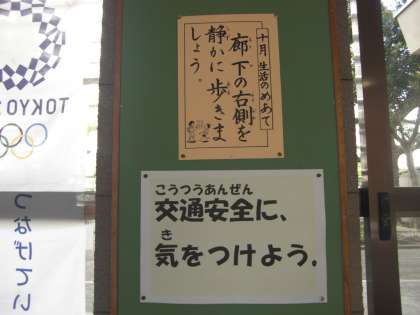 十月 生活のめあて
廊下の右側を
静かに歩きま
しょう。
こうつうあんぜん
交通安全に、
き
気をつけよう。
TOKYO 2
つなげてい